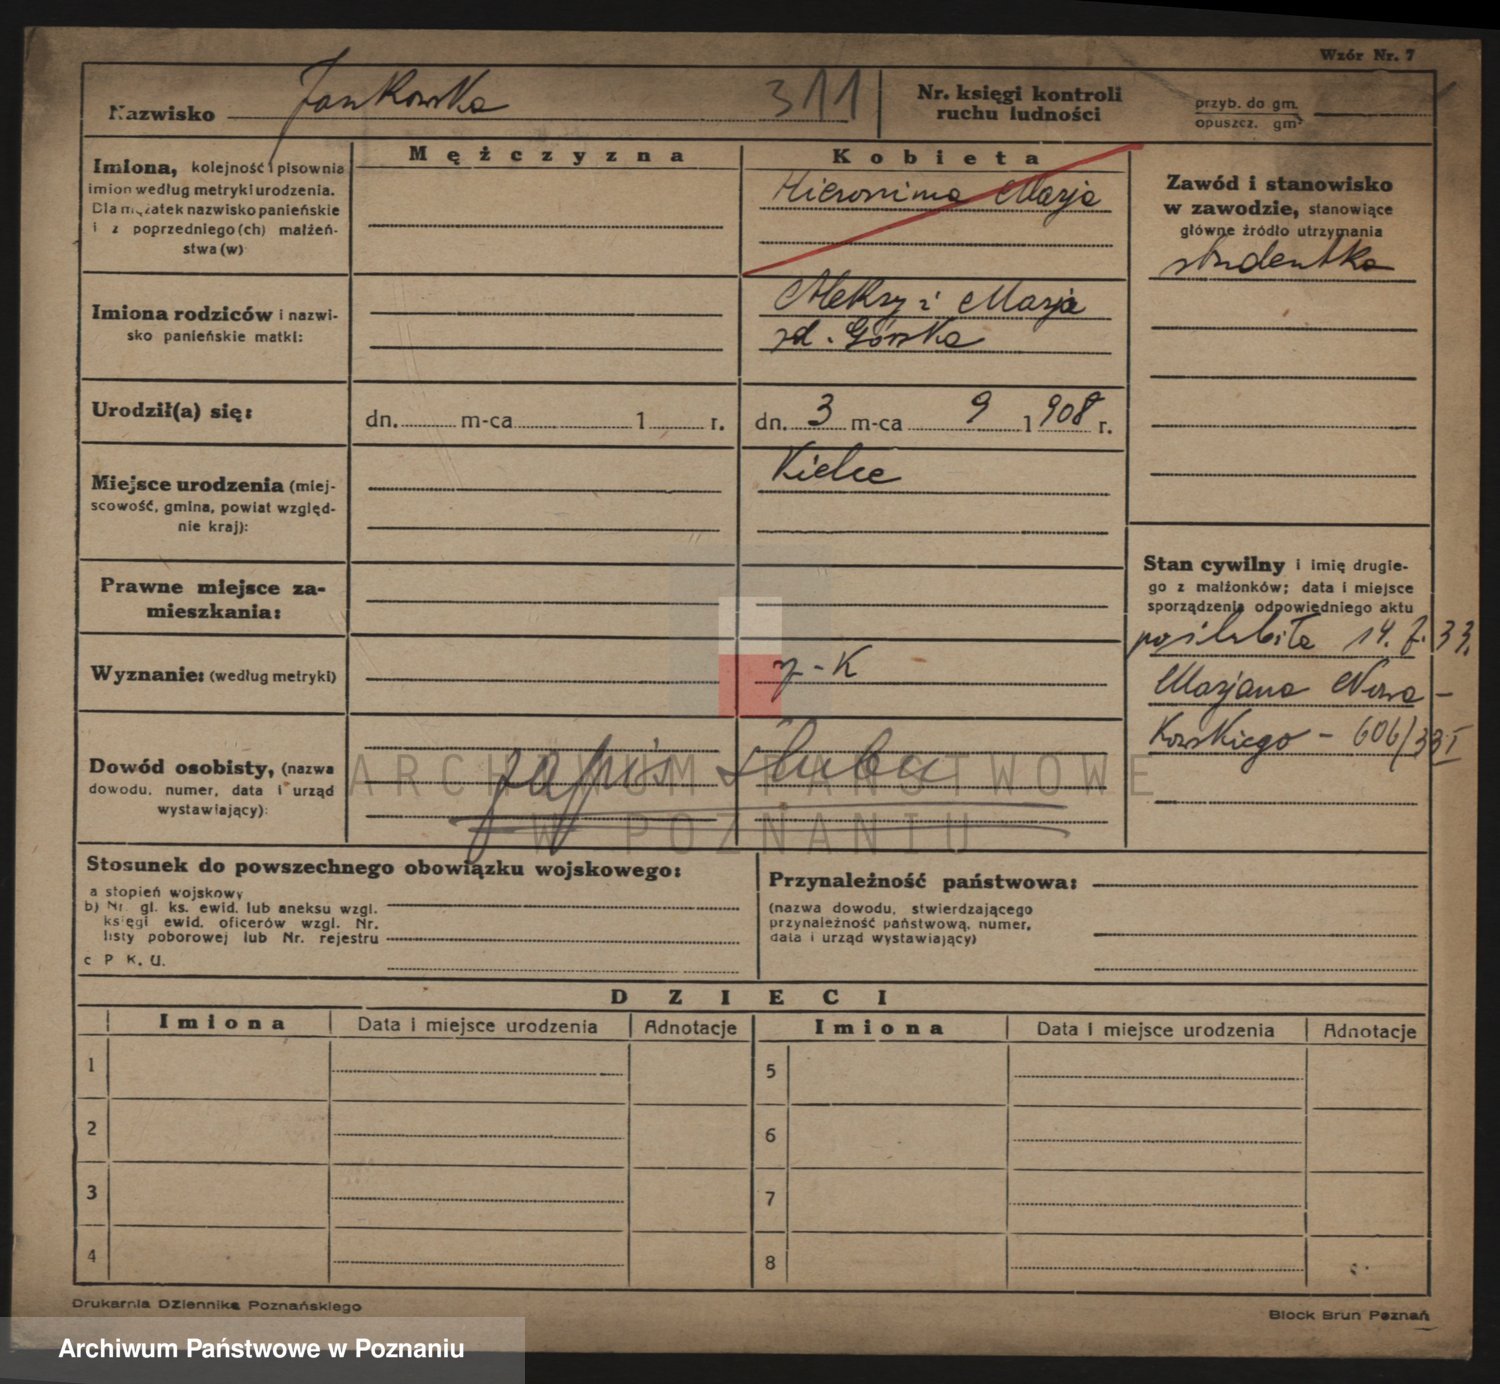 Wzór Nr. 7
Nazwisko Jankowska 311
Nr. księgi kontroli
ruchu ludności
przyb. do gm.
opuszcz. gm.
Imiona, kolejność i pisownia
imion według metryki urodzenia.
Dla mężatek nazwisko panieńskie
i z poprzedniego (ch) małżeń-
stwa (w)
Mężczyzna
Kobieta
Hieronima Marja
Zawód i stanowisko
w zawodzie, stanowiące
główne źródło utrzymania
studentka
Imiona rodziców i nazwi-
sko panieńskie matki:
Aleksy i Marja
zd. Górska
Urodził(a) się:
dn. m-ca 1 r.
dn. 3 m-ca 9 1908 r.
Miejsce urodzenia (miej-
scowość, gmina, powiat względ-
nie kraj):
Kielce
Prawne miejsce za-
mieszkania:
Stan cywilny i imię drugie-
go z małżonków; data i miejsce
sporządzenia odpowiedniego aktu
poślubiła 14. 7. 33.
Marjana Nowa-
kowskiego - 606/33 I
Wyznanie: (według metryki)
r-k
Dowód osobisty, (nazwa
dowodu, numer, data i urząd
wystawiający):
zapis ślubu
ARCHIWUM PAŃSTWOWE
W POZNANIU
Stosunek do powszechnego obowiązku wojskowego:
a stopień wojskowy
b) Nr. gl. ks. ewid. lub aneksu wzgl.
księgi ewid. oficerów wzgl. Nr.
listy poborowej lub Nr. rejestru
c P. K. U.
Przynależność państwowa:
(nazwa dowodu, stwierdzającego
przynależność państwową, numer,
data i urząd wystawiający)
DZIECI
Imiona Data i miejsce urodzenia Adnotacje Imiona Data i miejsce urodzenia Adnotacje
1 5
2 6
3 7
4 8
Drukarnia Dziennika Poznańskiego
Block Brun Poznań
Archiwum Państwowe w Poznaniu